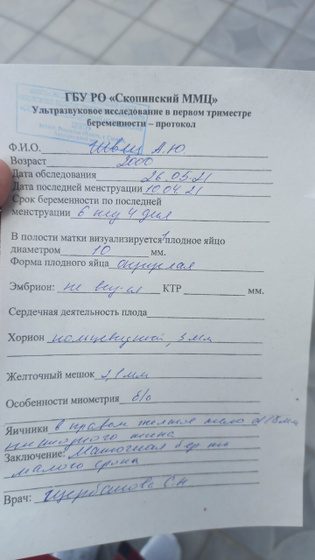 ГБУ РО «Скопинский ММЦ»
Ультразвуковое исследование в первом триместре
беременности – протокол
Ф.И.О. Швец А.Ю
Возраст 2000
Дата обследования 26.05.21
Дата последней менструации 10.04.21
Срок беременности по последней
менструации 6 нед 4 дня
В полости матки визуализируется 1 плодное яйцо
диаметром 10 мм.
Форма плодного яйца округлая
Эмбрион: не виз-ся КТР мм.
Сердечная деятельность плода
Хорион кольцевидный, 3 мм
Желточный мешок 2,1 мм
Особенности миометрия б/о
Яичники в правом желтое тело d 18 мм
кистозного типа
Заключение: Маточная бер-ть
малого срока
Врач: